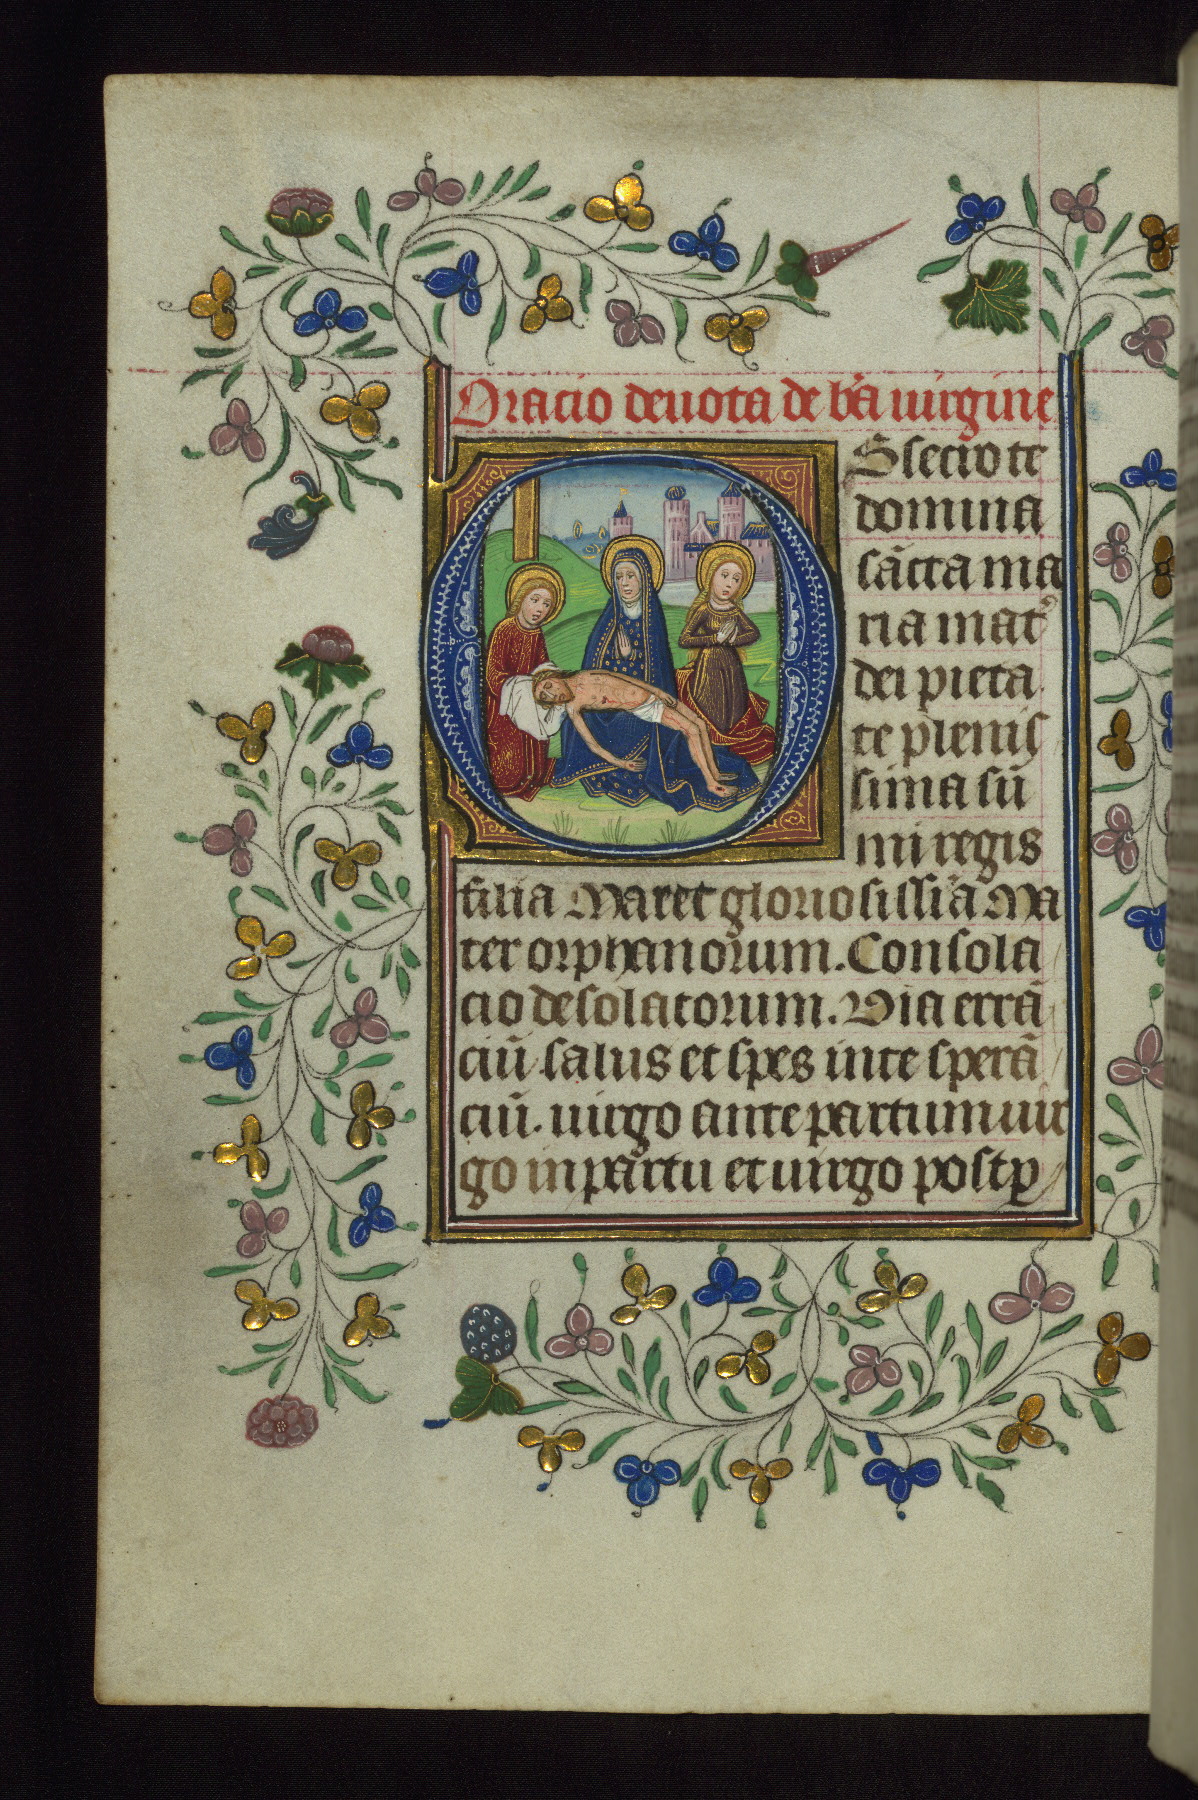 Oracio deuota de bẽa uirgine
O Bsecro te
domina
sãcta ma
ria mat᷒
dei pieta
te plenis
sima sũ
mi regis
filia Mater gloriosissĩa Ma
ter orphanorum. Consola
cio desolatorum. Via errã
ciũ. salus et spes inte sperã
ciũ. uirgo ante partum uir
go in partu et uirgo post p̱